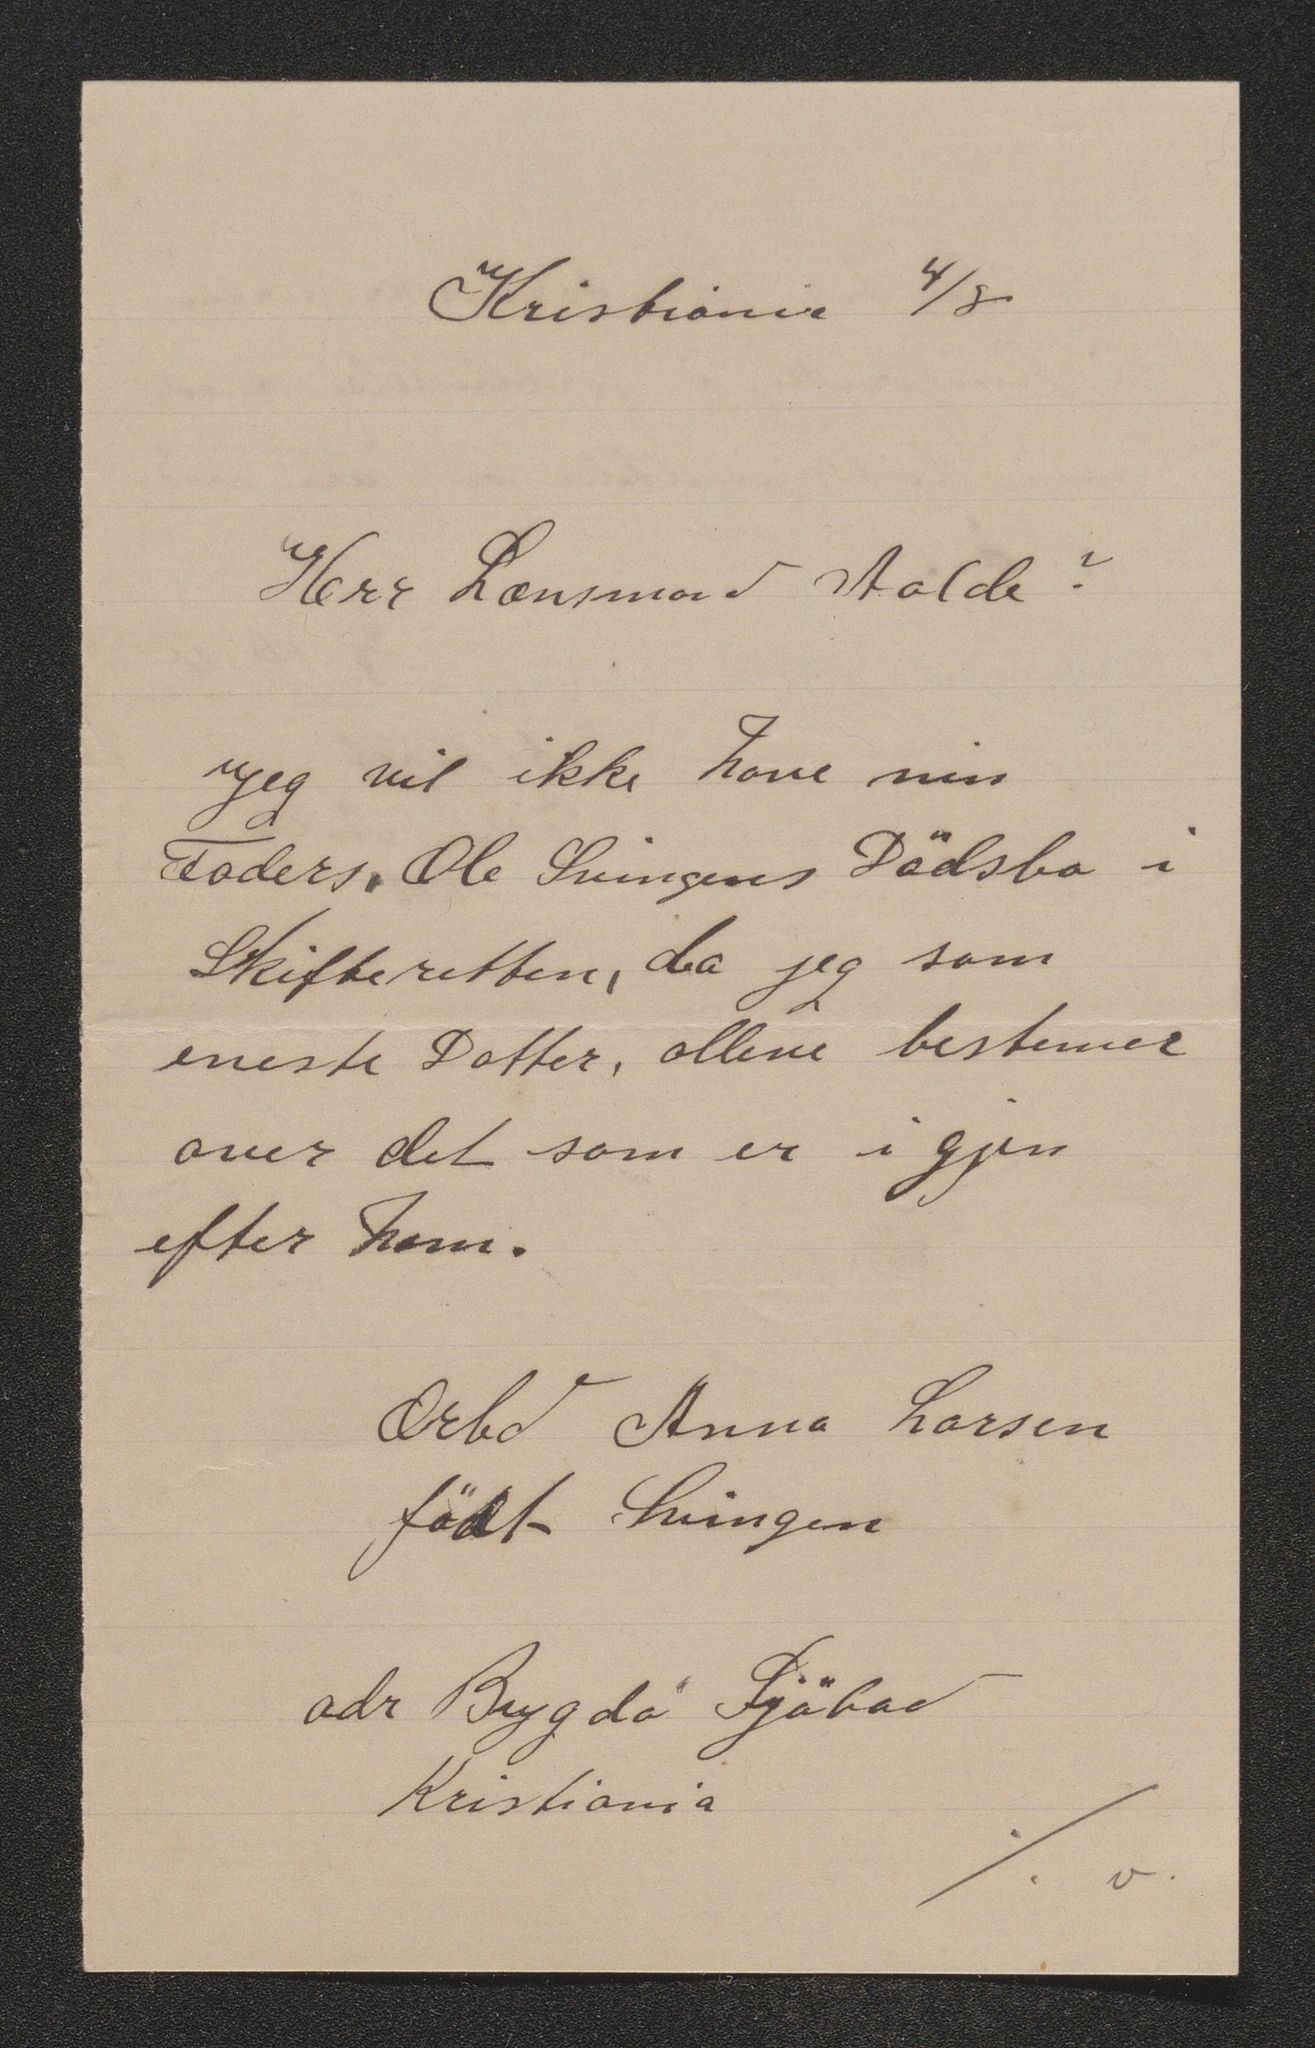 Kristiania 4/8
Herr Lensmand Aalde?
Jeg vil ikke have min
Faders, Ole Svingens Dödsbo i
Skifteretten, da jeg som
eneste Datter, allene bestemer
over det som er i gjen
efter ham.
Ærbd Anna Larsen
födt Svingen
adr Bygdö Sjöbad
Kristiania
·/. v.